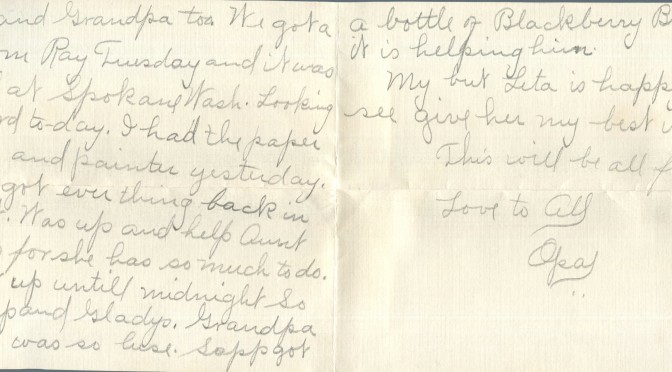 and Grandpa too. We got a
me Ray Tuesday and it was
at Spokane Wash. Looking
rd to-day. I had the paper
and painter yesterday.
got ever thing back in
. Was up and help Aunt
for she has so much to do.
up untill midnight So
p and Gladys. Grandpa
was so luse. Sapp got
a bottle of Blackberry B
it is helping him.
My but Leta is happ
see give her my best w
This will be all f
Love to All
Opal